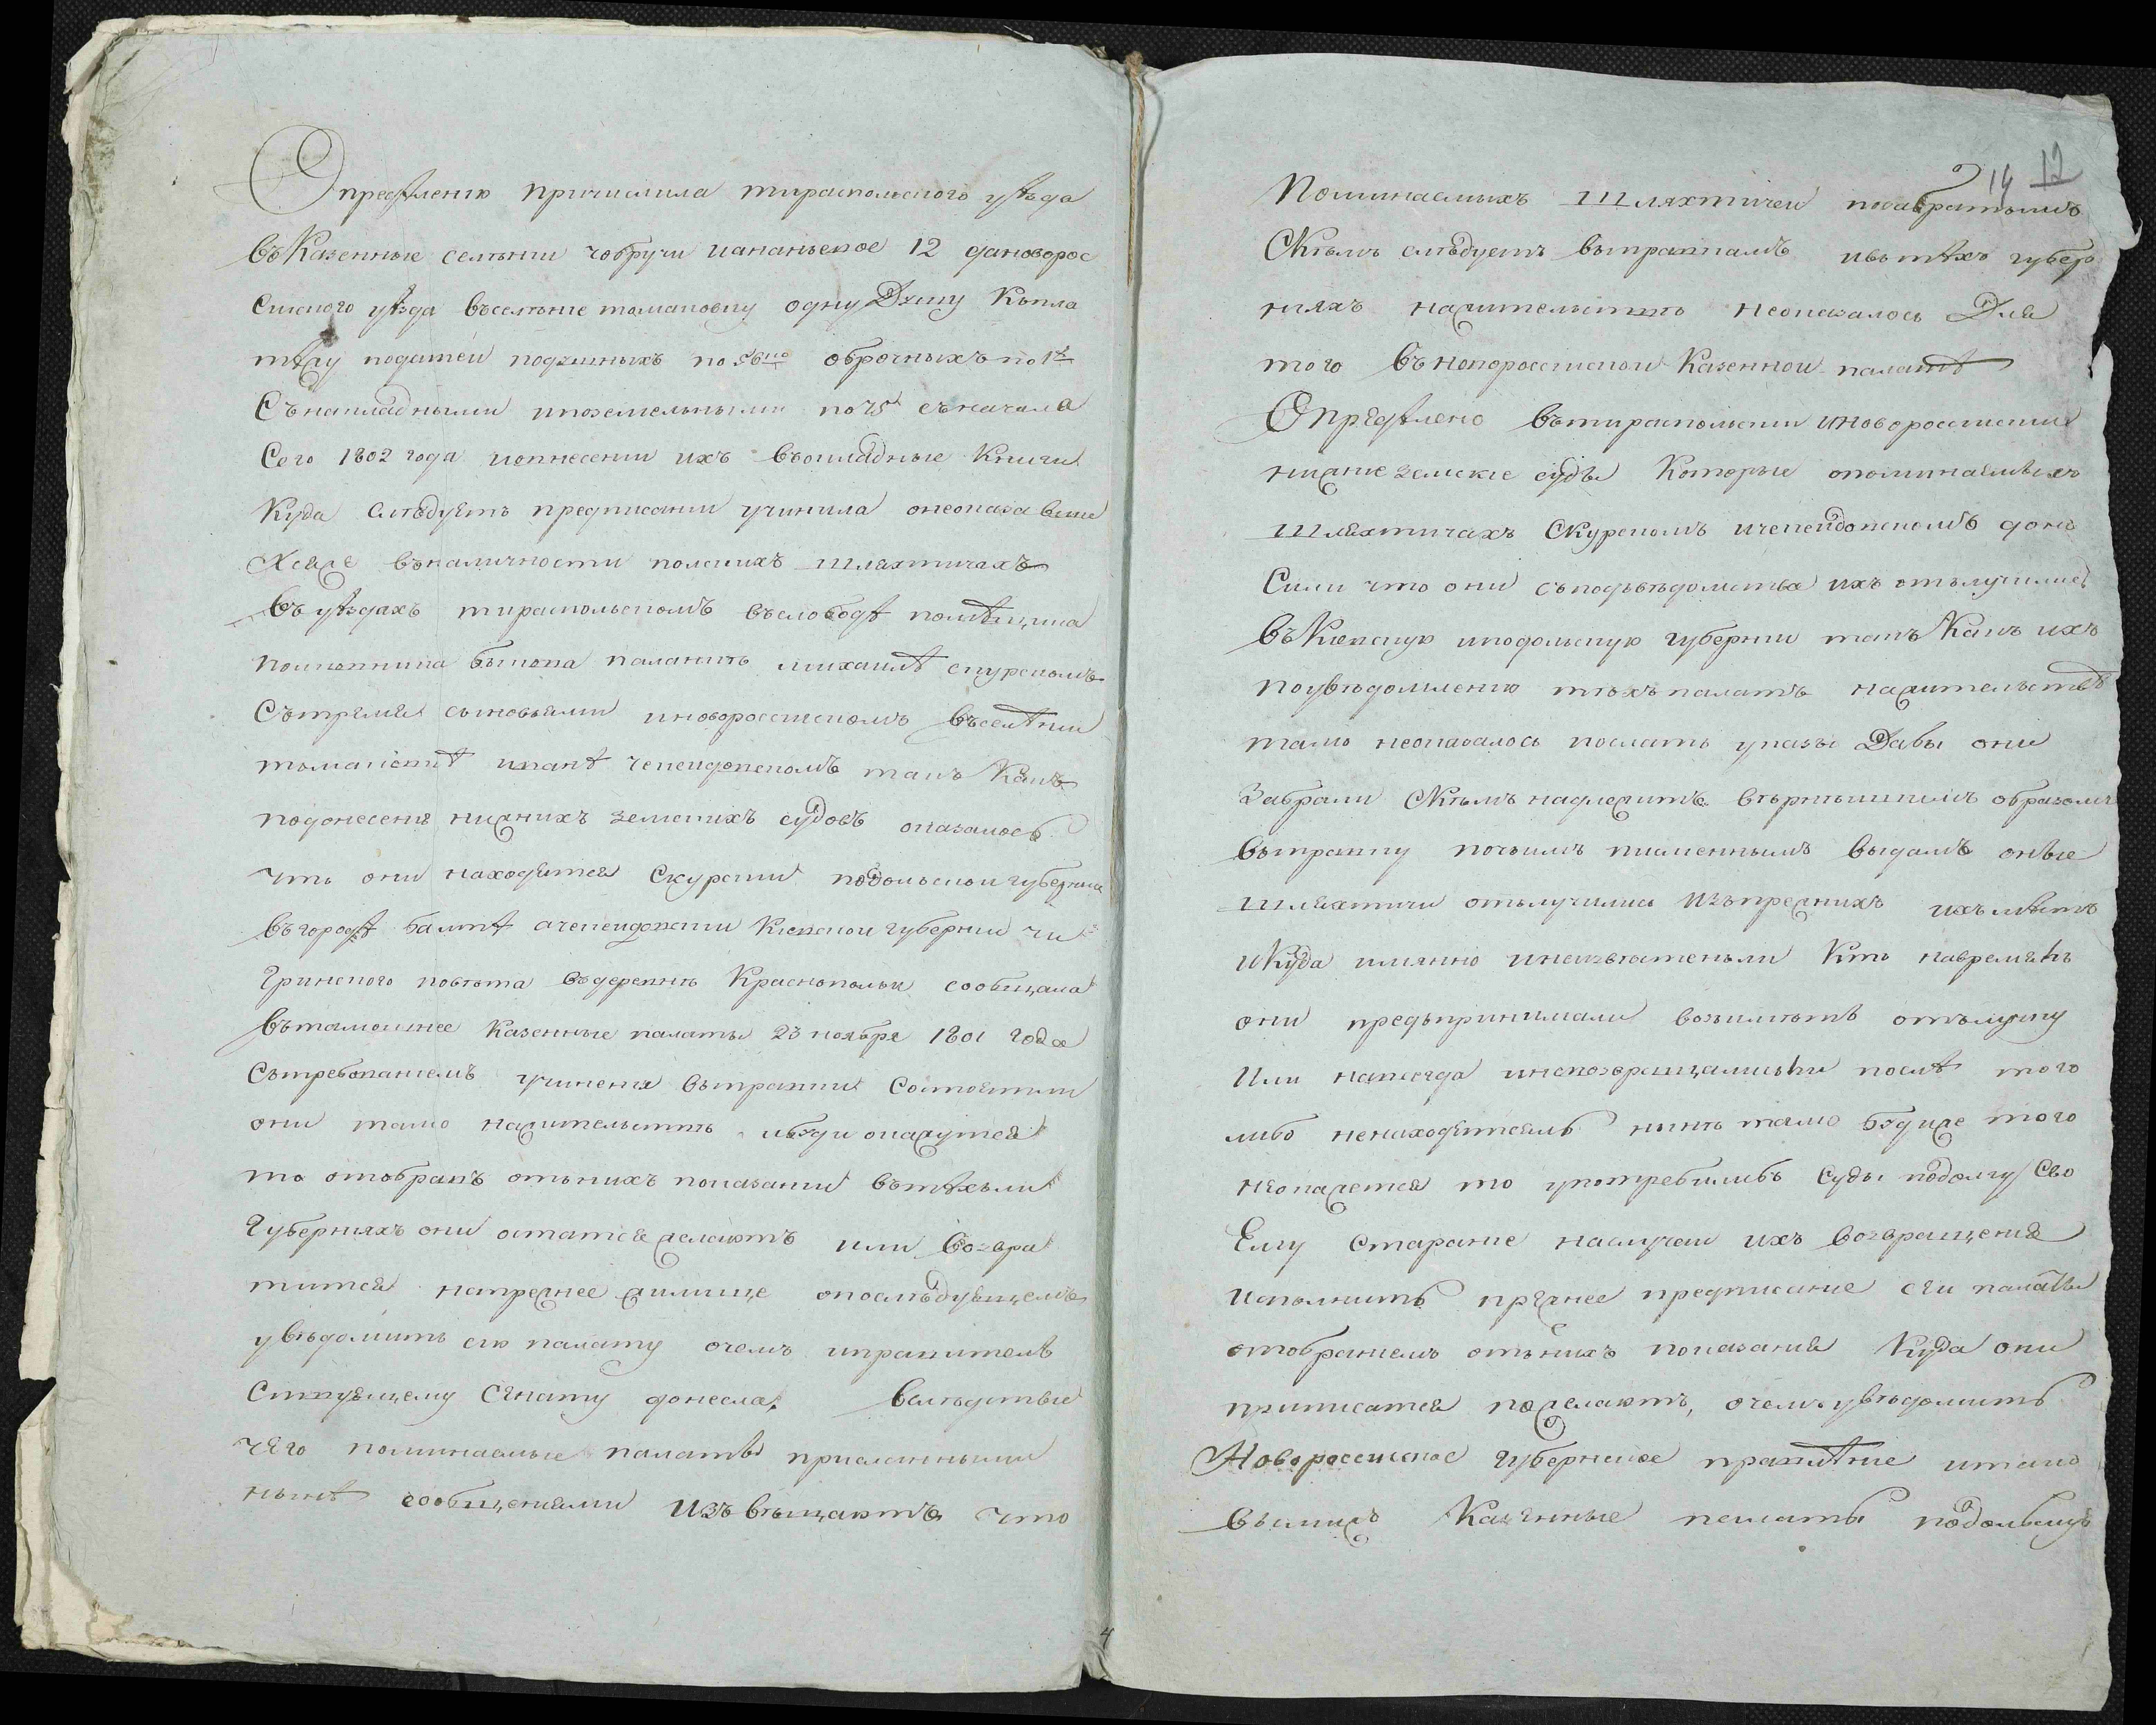 Опредѣлению причислила тираспольского уѣзда
въ Казенные селѣнии чобручи ианановское 12 дановорос
сииского уѣзда въселѣние томановку одну Душу Кьпла
тѣжу податей подушныхъ по 56 ко оброчныхъ по 1
Сънакладными ипоземельными по 75 съначала
Сего 1802 года иовнесении ихъ въокладные Книги
Куда слѣдуетъ предписании учинила онеоказавши
Хсяже въналичности полскихъ шляхтичахъ
въ уѣздахъ тираспольскомъ въслободѣ помѣщика
полковника быкова паланкѣ михаилѣ скурскомъ
Сътремя сыновьями иновороссискомъ въселѣнии
томаковкѣ иванѣ чепеидовскомъ такъ Какъ
подонесению нижнихъ земскихъ судовъ оказалось
что они находятся Скурский подольской губернии
въгородѣ балтѣ ачепеидовский Киевской губернии чи
гринского повѣта въдеревнѣ Краснополки сообщала
вътамошнее Казенные палаты 23 ноября 1801 года
Сътребованиемъ учинения выправки Состоятъли
они тамо нажителствѣ ибуди окажутся
то отобравъ отънихъ показании вътѣхъли
губерниях они остатся желаютъ или Возвра
тится напрежнее жилище опослѣдующемъ
увѣдомить сию палату очемъ иправителъ
Ствующему Сенату донесла, вслѣдствие
чего поминаемые палаты присланными
нынѣ сообщениями Извѣщаютъ что
14 12
Поминаемыхъ шляхтичей пособратымъ
Скѣмъ слѣдуетъ выправкамъ ивътѣхъ губер
нияхъ нажителствѣ неоказалось Для
того въновороссиской Казенной палатѣ
Опредѣлено вътираспольский иновороссиский
нижние земские суды Которые опоминаемыхъ
шляхтичахъ Скурскомъ ичепеидовскомъ доне
Сили что они съподвѣдомства ихъ отълучились
въ Киевскую иподольскую губернии такъ Какъ ихъ
поувѣдомлению тѣхъ палатъ нажителствѣ
тамо неоказалось послать указы Дабы они
Забрали Скѣмъ надлежитъ вѣрнѣйшимъ образомъ
выправку почьимъ писменнымъ видамъ оные
шляхтичи отълучились изъпрежнихъ ихъмѣстъ
иКуда имянно инеизвѣстенъли Кто навремяль
они предъпринимали возъимѣть отълучку
Или навсегда иневозвращалисьли послѣ того
либо ненаходятсяль нынѣ тамо будиже того
неокажется то употребилибъ суды подолгу Сво
Ему старание наслучаи ихъ возвращения
исполнить прежнее предписание сеи палаты
отобраниемъ отънихъ показания Куда они
приписатся пожелаютъ, очемъ увѣдомить
Новороссиское губернское правлѣние итако
выжъ Казенные палаты подольскую
4